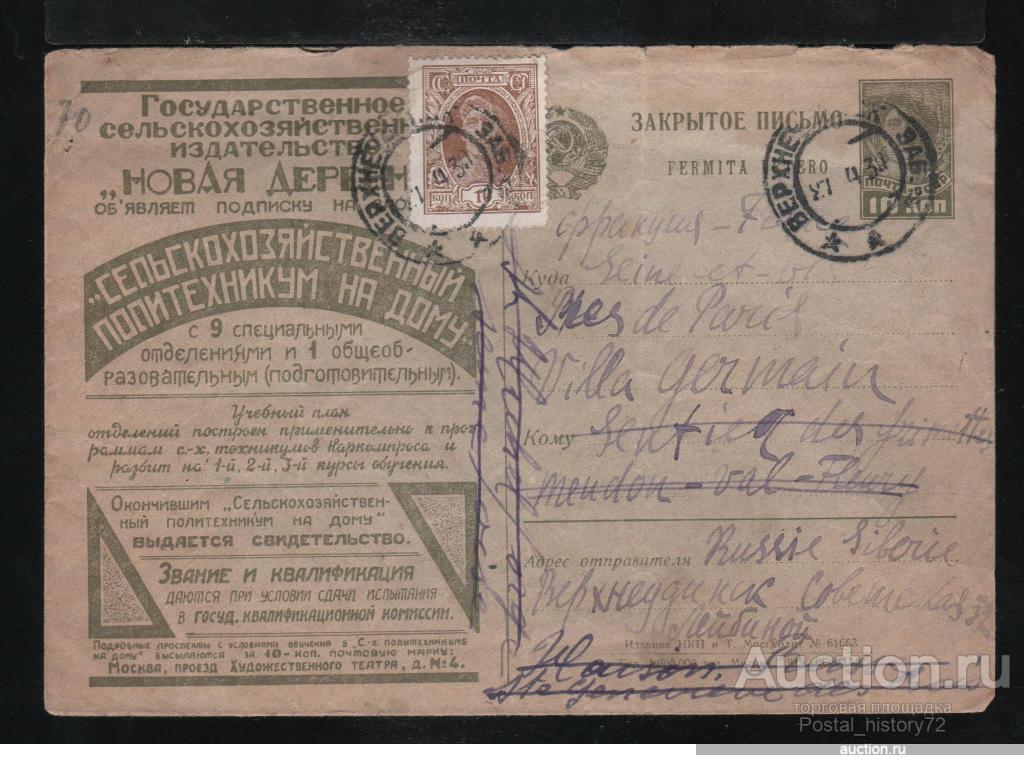 70
Государственное
сельскохозяйственн
издательств
„НОВАЯ ДЕРЕВН
ОБ'ЯВЛЯЕТ ПОДПИСКУ НА
"СЕЛЬСКОХОЗЯЙСТВЕННЫЙ
ПОЛИТЕХНИКУМ НА ДОМУ"
с 9 специальными
отделениями и 1 общеоб-
разовательным (подготовительным).
Учебный план
отделений построен применительно к прог-
раммам с.-х. техникумов Наркомпроса и
разбит на 1-й, 2-й, 3-й курсы обучения.
Окончившим „Сельскохозяйствен-
ный политехникум на дому"
ВЫДАЕТСЯ СВИДЕТЕЛЬСТВО.
Звание и квалификация
даются при условии сдачи испытания
в госуд. квалификационной комиссии.
Подробные проспекты с условиями обучения в „С.-х. политехникуме
на дому" высылаются за 10-коп. почтовую марку:
Москва, проезд Художественного театра, д. №4.
ПОЧТА
КОП КОП
ВЕРХНЕ
ЗАКРЫТОЕ ПИСЬМО
FERMITA ERO
ПОЧТА
10 КОП
ВЕРХНЕ
Франция -
Куда Seine et
Pres de Paris
Villa Germain
Кому Sentier des
meudon - val - Fleury
Адрес отправителя Russie Siberie
Верхнеудинск Советская 32
Лейбиной
Издание НКП и Т. № 61663
Ste Genevieve des
Auction.ru
торговая площадка
Postal_history72
auction.ru